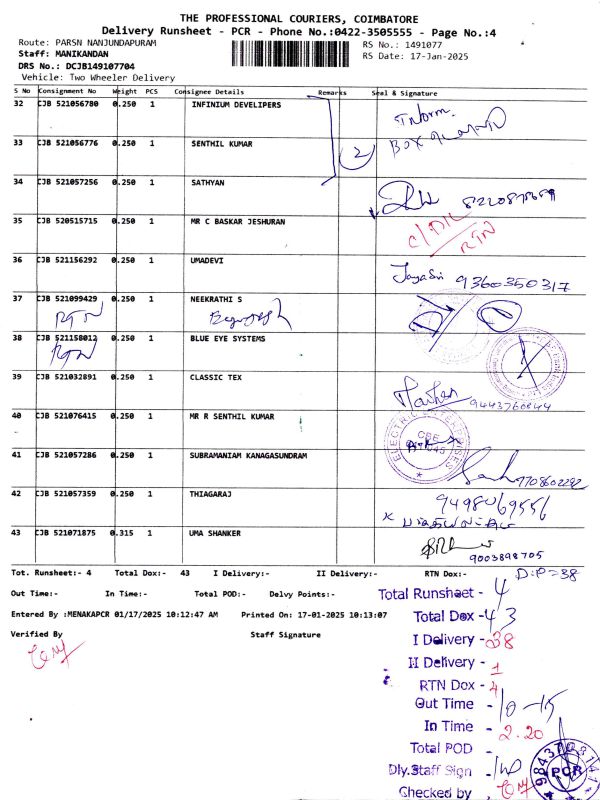 THE PROFESSIONAL COURIERS, COIMBATORE
Delivery Runsheet - PCR - Phone No.:0422-3505555 - Page No.:4
Route: PARSN NANJUNDAPURAM
RS No.: 1491077
Staff: MANIKANDAN
RS Date: 17-Jan-2025
DRS No.: DCJB149107704
Vehicle: Two Wheeler Delivery
S No Consignment No Weight PCS Consignee Details Remarks Seal & Signature
32 CJB 521056780 0.250 1 INFINIUM DEVELIPERS
Inform.
Box
33 CJB 521056776 0.250 1 SENTHIL KUMAR
2
34 CJB 521057256 0.250 1 SATHYAN
35 CJB 520515715 0.250 1 MR C BASKAR JESHURAN
C/DIL
RTN
36 CJB 521156292 0.250 1 UMADEVI
JayaSri 9360350317
37 CJB 521099429 0.250 1 NEEKRATHI S
RTN
38 CJB 521158012 0.250 1 BLUE EYE SYSTEMS
RTN
39 CJB 521032891 0.250 1 CLASSIC TEX
9443760844
40 CJB 521076415 0.250 1 MR R SENTHIL KUMAR
CBE
41 CJB 521057286 0.250 1 SUBRAMANIAM KANAGASUNDRAM
9708602292
42 CJB 521057359 0.250 1 THIAGARAJ
9498069556
43 CJB 521071875 0.315 1 UMA SHANKER
9003898705
Tot. Runsheet:- 4 Total Dox:- 43 I Delivery:- II Delivery:- RTN Dox:-
D.P=38
Out Time:- In Time:- Total POD:- Delvy Points:-
Total Runsheet - 4
Entered By :MENAKAPCR 01/17/2025 10:12:47 AM Printed On: 17-01-2025 10:13:07
Total Dox - 43
Verified By Staff Signature
I Delivery - 38
II Delivery - 1
RTN Dox - 4
Out Time - 10-15
In Time - 2.20
Total POD -
Dly.Staff Sign -
Checked by
PCR